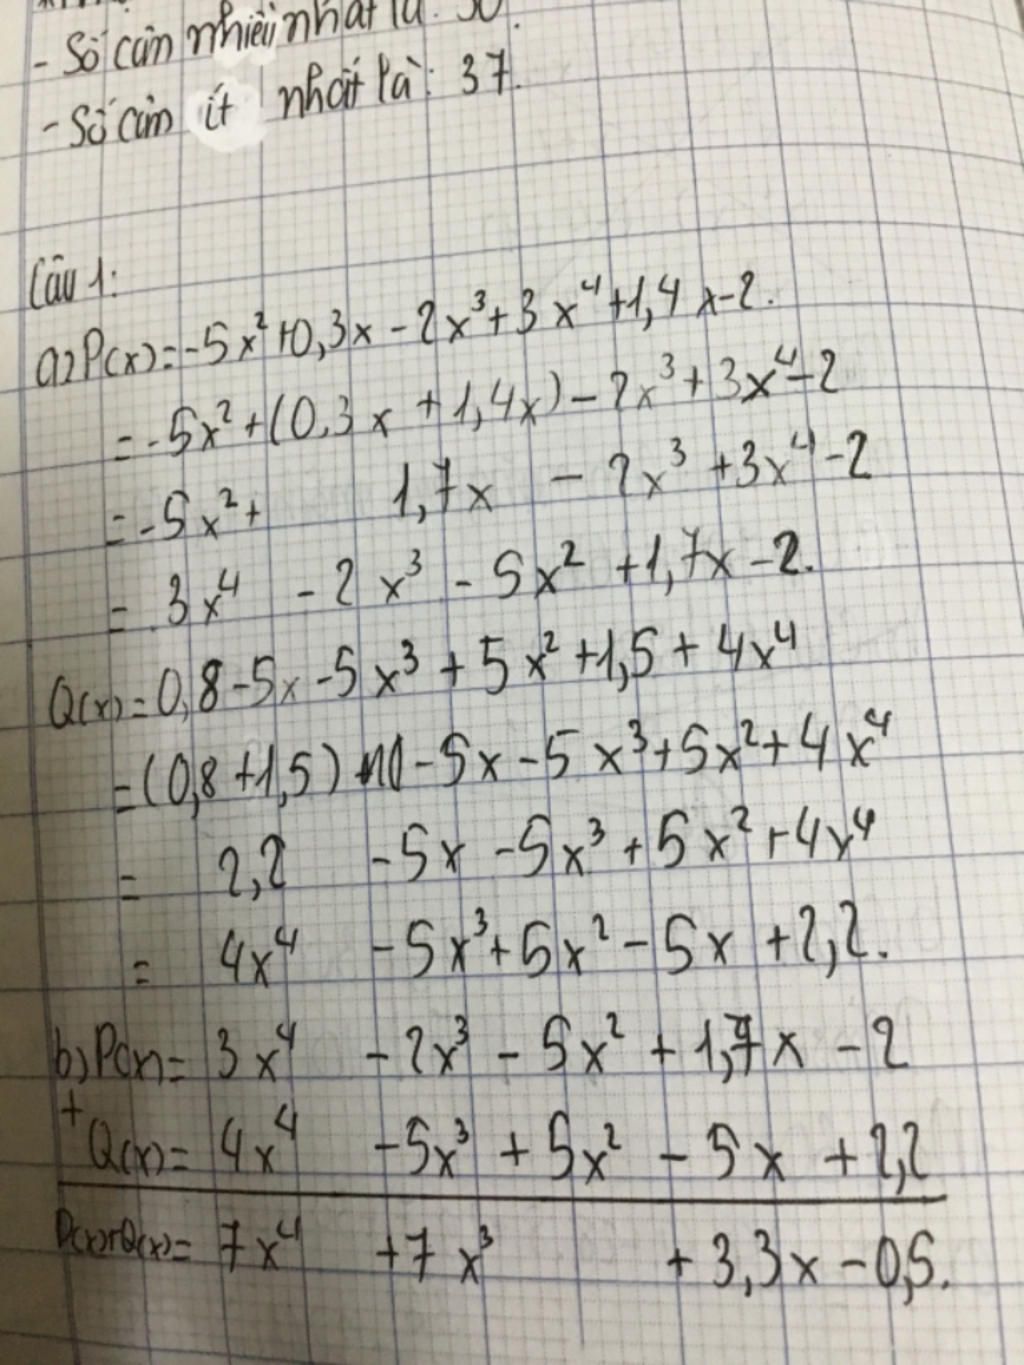 - Số cân nhiều nhất là: 50.
- Số cân ít nhất là: 37.
Câu 1:
a) P(x) = -5x² + 0,3x - 2x³ + 3x⁴ + 1,4x - 2.
= -5x² + (0,3x + 1,4x) - 2x³ + 3x⁴ - 2
= -5x² + 1,7x - 2x³ + 3x⁴ - 2
= 3x⁴ - 2x³ - 5x² + 1,7x - 2.
Q(x) = 0,8 - 5x - 5x³ + 5x² + 1,5 + 4x⁴
= (0,8 + 1,5) - 5x - 5x³ + 5x² + 4x⁴
= 2,2 - 5x - 5x³ + 5x² + 4x⁴
= 4x⁴ - 5x³ + 5x² - 5x + 2,2.
b) P(x) = 3x⁴ - 2x³ - 5x² + 1,7x - 2
+ Q(x) = 4x⁴ - 5x³ + 5x² - 5x + 2,2
P(x)+Q(x) = 7x⁴ + 7x³ + 3,3x - 0,5.